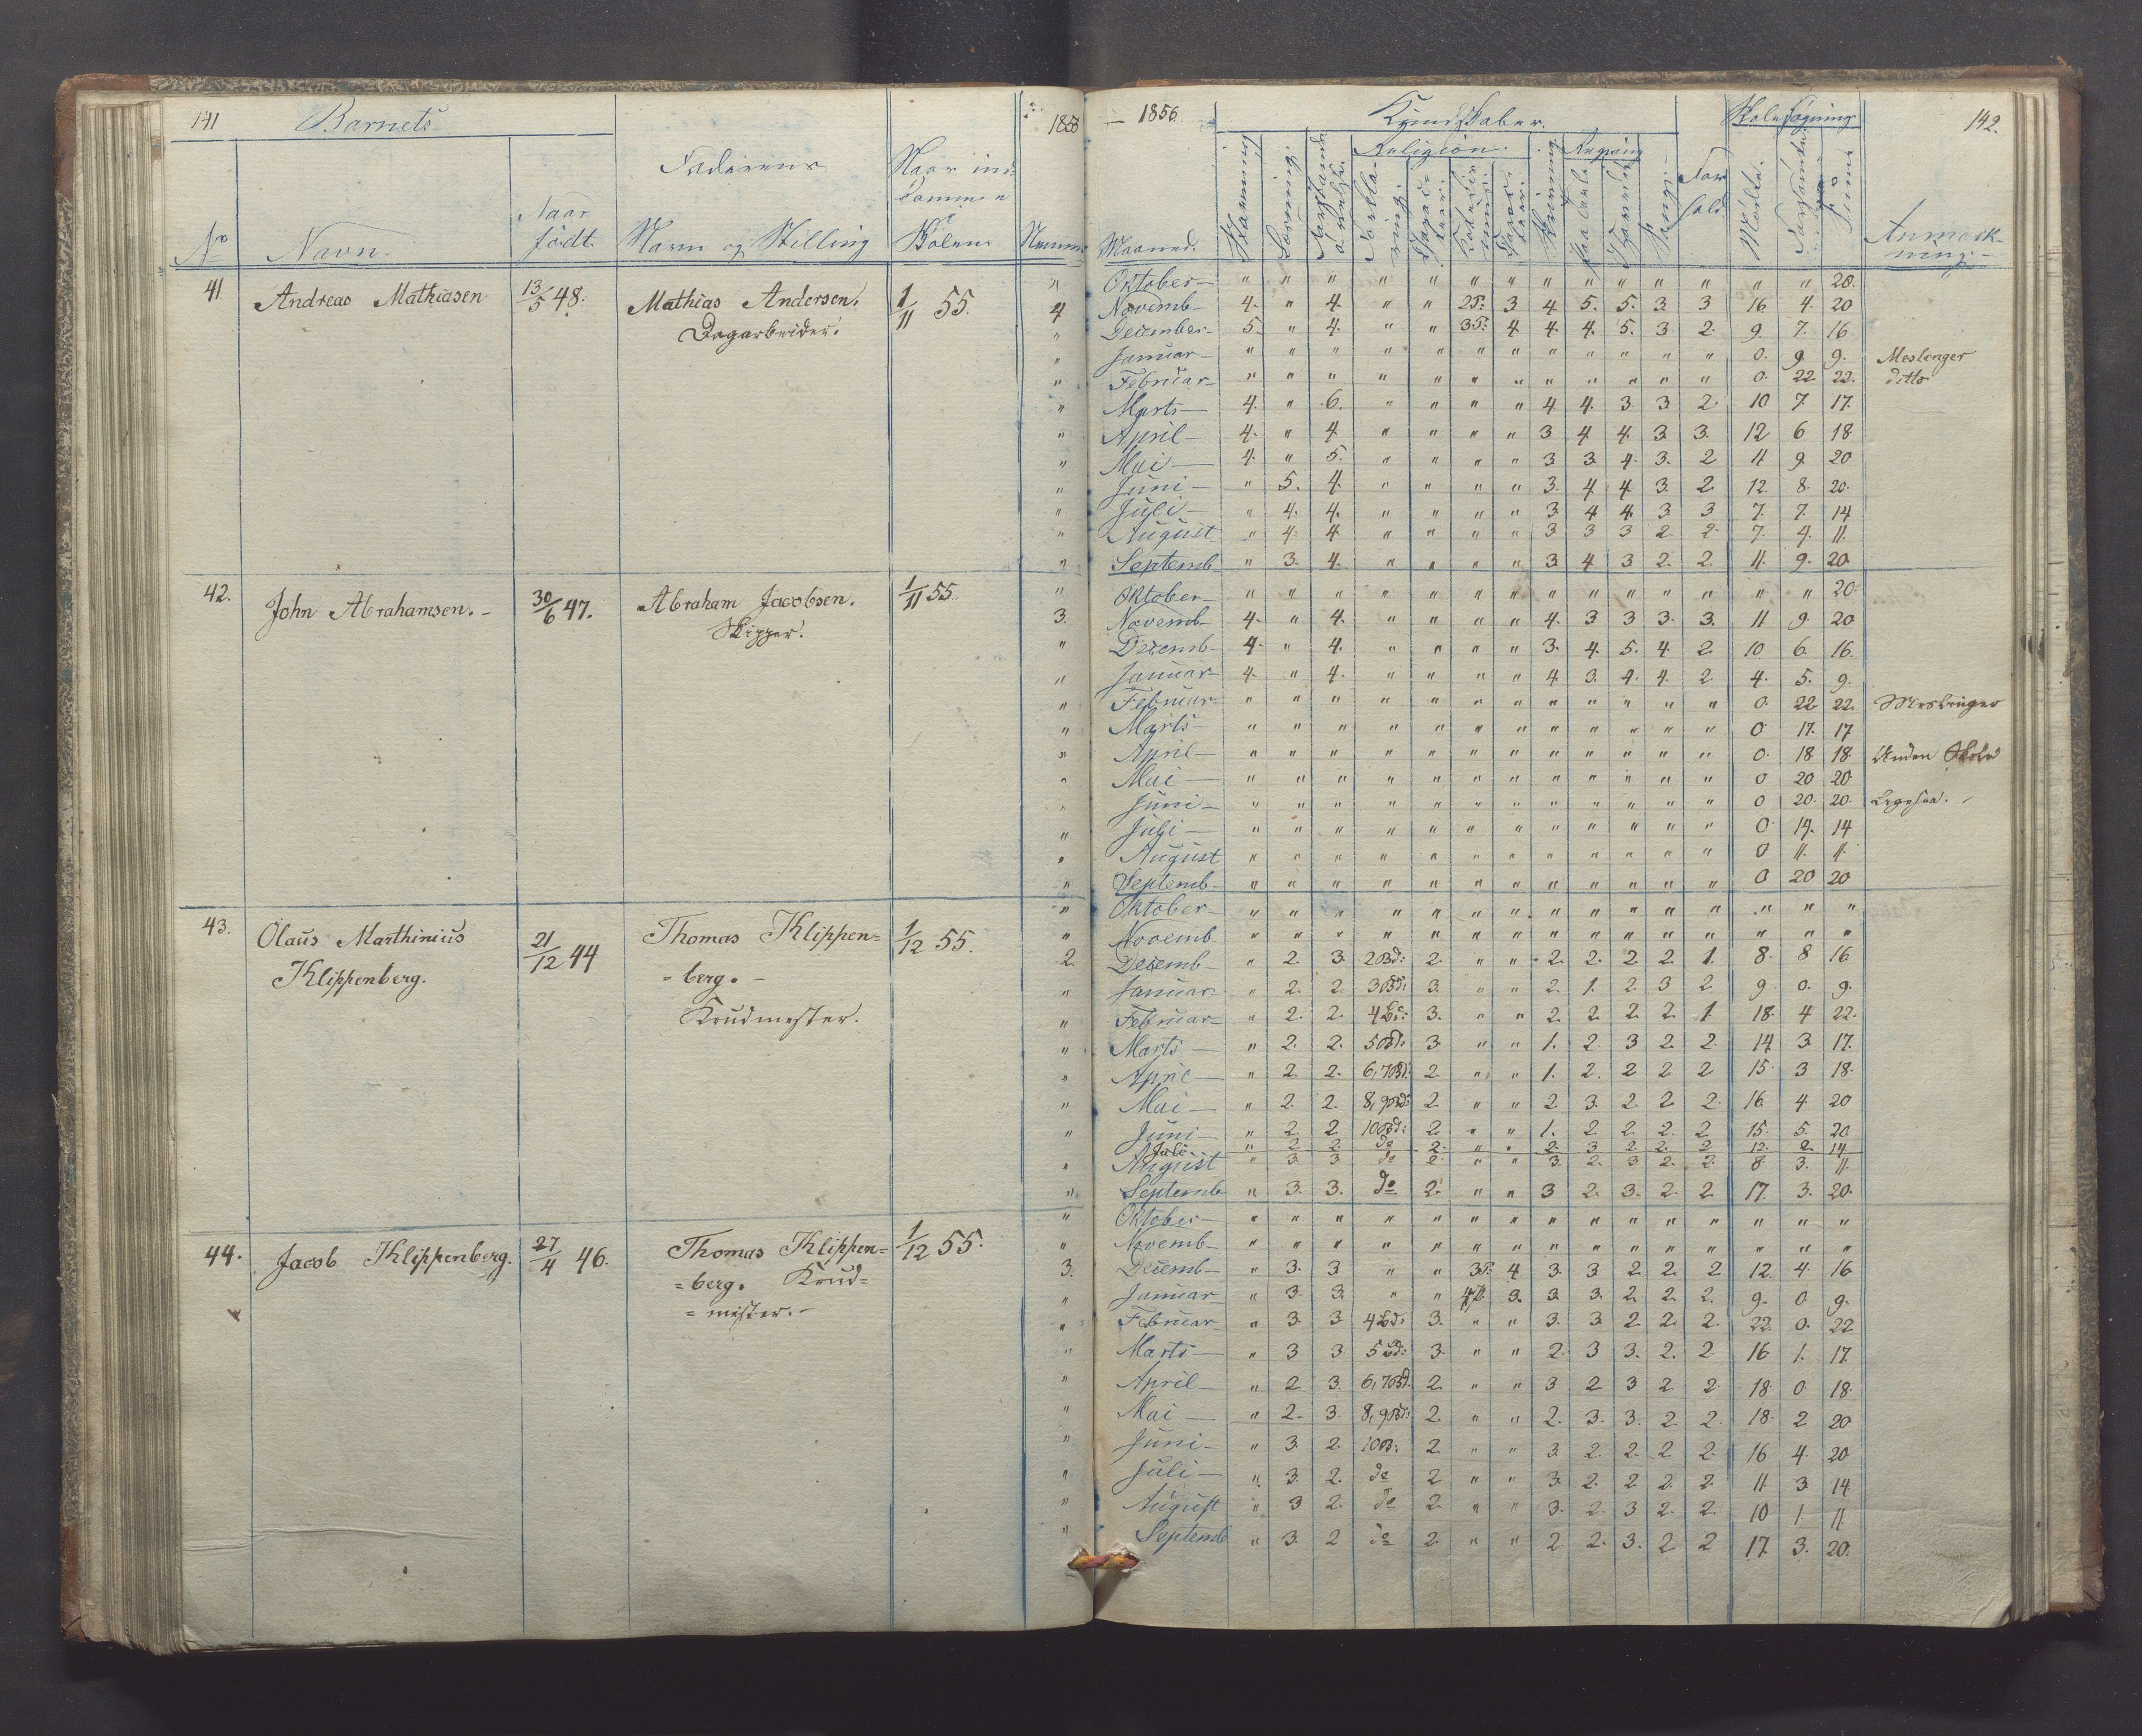 141
Barnets
1855
— 1856.
Kundskaber.
Skolesøgning
142.
Faderens
Naar ind-
komme i
Religion.
Regning
For
hold
No
Navn.
Naar
født.
Navn og Stilling
Skolen
Numer
Maaned.
Stavning
Læsning.
Forklaring.
Skrivning
Sang.
Mødte.
Forsømte
Sum
Anmærk-
ning.
41. Andreas Mathiasen 13/5 48. Mathias Andersen. 1/11 55.
Dagarbeider.
" Oktober — " " " " " " " " " " " " " " 20.
4 Novemb— 4. " 4. " " 2T. 3 4 5. 5. 3. 3 16. 4. 20
" December— 5. " 4. " " 3T. 4. 4. 4. 5. 3 2. 9. 7. 16
" Januar— " " " " " " " " " " " " 0. 9 9. Meslenger
" Februar— " " " " " " " " " " " " 0. 22. 22. ditto
" Marts— 4. " 6. " " " " 4 4. 3 3 2. 10 7. 17.
" April— 4. " 4. " " " " 3 4 4. 3. 3. 12 6 18
" Mai— 4. " 5. " " " " 3 3. 4. 3. 2 11 9. 20
" Juni— " 5. 4. " " " " 3. 4 4 3. 2. 12. 8. 20.
" Juli— " 4. 4. " " " " 3. 4 4. 3 3 7. 7. 14
" August " 4. 4 " " " " 3 3 3 2. 2. 7. 4. 11.
" Septemb " 3. 4. " " " " 3 4 3 2. 2. 11. 9. 20.
42. John Abrahamsen. - 30/6 47. Abraham Jacobsen. 1/11 55.
Skipper.
" Oktober— " " " " " " " " " " " " " " 20.
3. Novemb— 4. " 4. " " " " 4. 3 3 3. 3. 11 9. 20
" Decemb— 4. " 4. " " " " 3. 4. 5. 4. 2. 10 6. 16.
" Januar— 4. " 4. " " " " 4 3. 4. 4. 2. 4. 5. 9.
" Februar— " " " " " " " " " " " " 0. 22. 22. Meslinger
" Marts— " " " " " " " " " " " " 0 17. 17
" April— " " " " " " " " " " " " 0. 18 18. Anden Skole
" Mai— " " " " " " " " " " " " 0 20 20
" Juni— " " " " " " " " " " " " 0 20. 20.
" Juli— " " " " " " " " " " " " 0 14. 14
" August " " " " " " " " " " " " 0 11. 11.
" Septemb— " " " " " " " " " " " " 0 20 20
43. Olaus Marthinius 21/12 44 Thomas Klippen= 1/12 55.
Klippenberg. = berg. -
Krudmester.
" Oktober— " " " " " " " " " " " " " " "
" Novemb " " " " " " " " " " " " " " "
2. Decemb— " 2. 3. 2 Bd: 2. " " 2. 2. 2 2 1. 8. 8 16
" Januar— " 2. 2. 3 Bd: 3. " " 2. 1. 2. 3 2 9 0. 9.
" Februar— " 2. 2. 4 Bd: 3. " " 2. 2 2. 2 1. 18. 4 22.
" Marts— " 2. 2. 5 Bd. 3. " " 1. 2. 3 2. 2. 14 3. 17.
" April— " 2. 2. 6,7 Bd: 2. " " 1. 2. 2 2 2 15. 3 18.
" Mai— " 2. 2. 8,9 Bd: 2. " " 2 3. 2. 2. 2. 16. 4 20
" Juni— " 2. 2 10 Bd: 2. " " 1. 2 2. 2. 2 15. 5. 20
Juli " 2 2. do 2. " " 2. 3 2 2. 2 12. 2. 14
" August " 3 3 do 2 " " 3. 2. 3 2. 2. 8 3. 11.
" Septemb " 3. 3. do 2. " " 3 2. 3. 2. 2 17. 3. 20.
44. Jacob Klippenberg. 27/4 46. Thomas Klippen= 1/12 55.
=berg. Krud=
=mester. -
" Oktober— " " " " " " " " " " " " " " "
" Novemb— " " " " " " " " " " " " " " "
3. Decemb— " 3. 3 " " 3T. 4 3. 3 2 2. 2 12. 4. 16
" Januar— " 3. 3. " " 3. 3. 3. 2. 2. 2. 9. 0 9.
" Februar— " 3. 3. 4 Bd. 3. " " 3. 3 2 2. 2. 22. 0. 22
" Marts— " 3 3 5 Bd: 3. " " 2. 3 3. 2. 2. 16 1. 17.
" April— " 2 3. 6,7 Bd. 2. " " 3 2 3 2. 2. 18. 0 18.
" Mai— " 2. 3. 8,9 Bd: 2. " " 2. 3. 3. 2. 2. 18. 2 20
" Juni— " 3. 2. 10 B. 2. " " 3. 2. 2. 2. 2. 16 4. 20
" Juli— " 3. 2. do 2 " " 3. 2. 2. 2. 2. 11. 3. 14
" August " 3 2. do 2. " " 3. 2. 3 2. 2. 10 1. 11
" Septemb " 3. 2 do 2. " " 2 2. 3. 2 2 17. 3. 20.